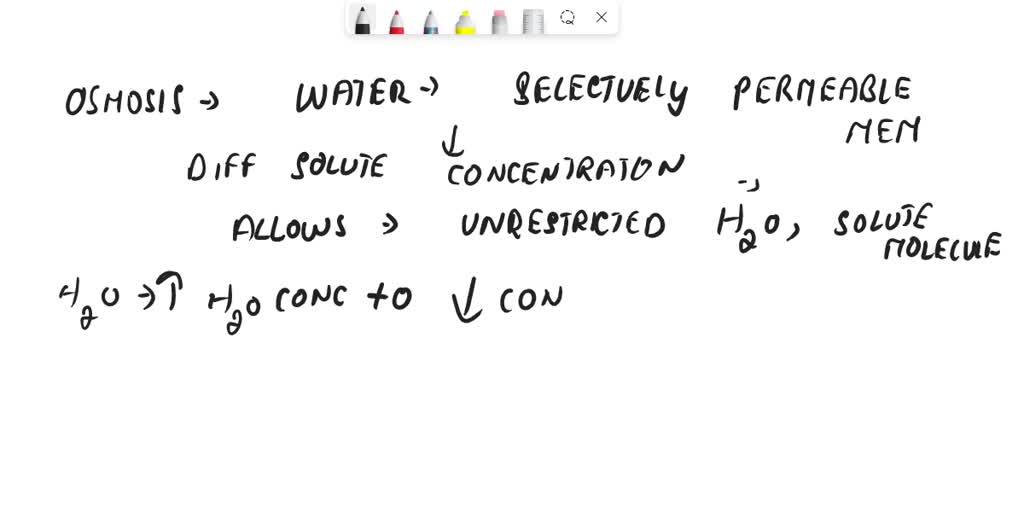 OSMOSIS → WATER → SELECTUELY PERMEABLE
MEM
DIFF SOLUTE ↓ CONCENTRATION
ALLOWS → UNRESTRICTED H₂O, SOLUTE
MOLECULE
H₂O → ↑ H₂O CONC to ↓ CON